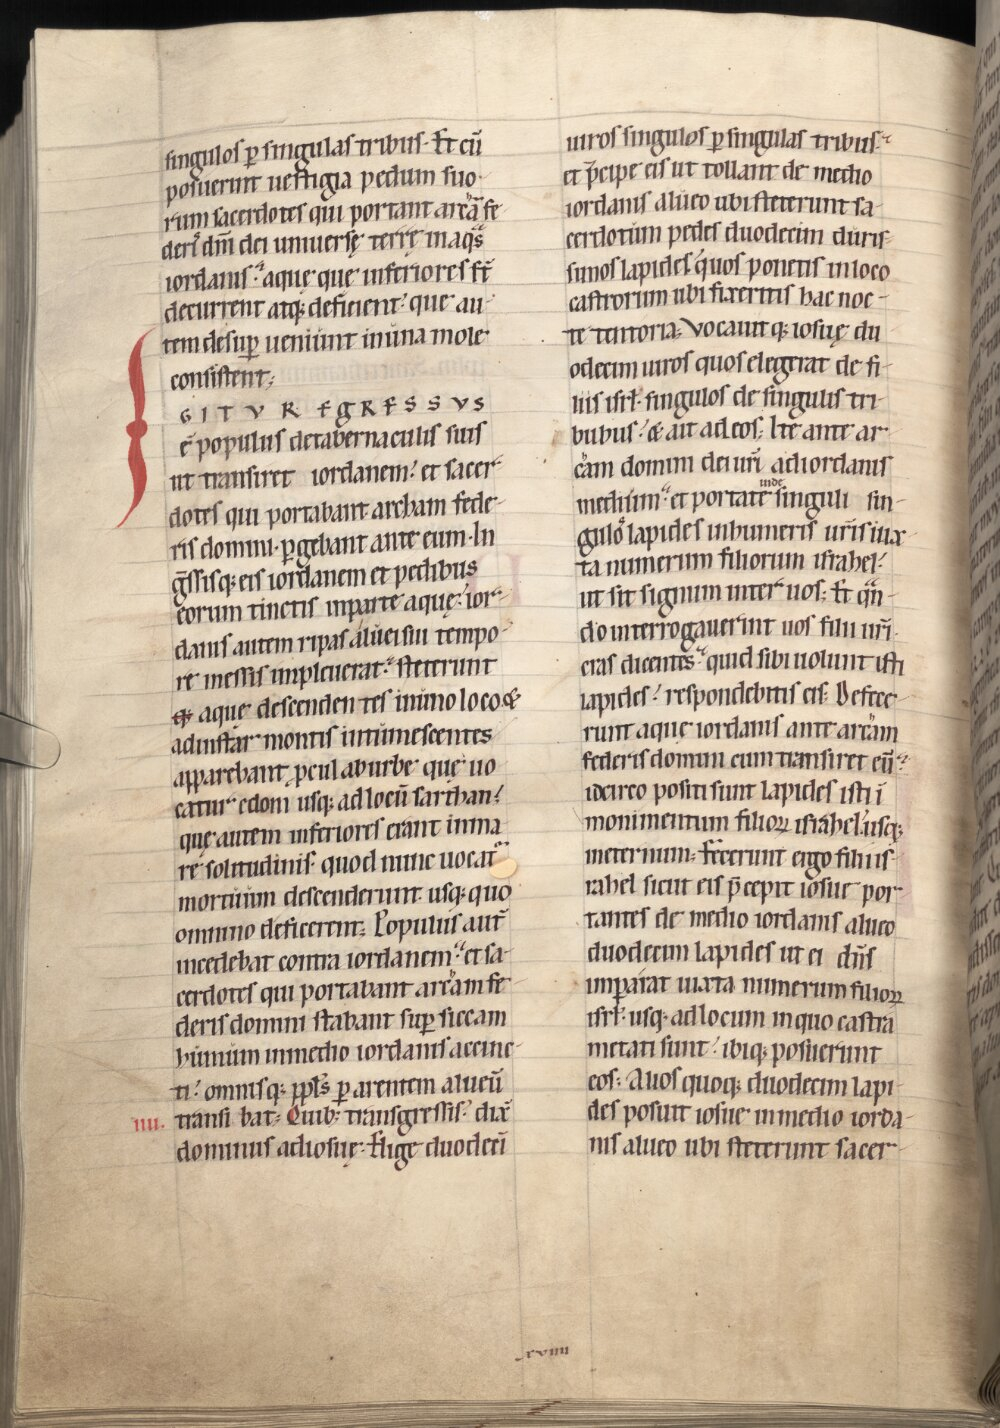 singulos ꝑ singulas tribus· Et cū
posuerint uestigia pedum suo
rum sacerdotes qui portant arcā fe
deri᷒ dn̄i dei uniuersę terrę in aqͣs
iordanis· aquę quę inferiores sт̄
decurrent atq; deficient· que au
tem desuꝑ ueniunt in una mole
consistent;
I GITVR EGRESSVS
ē populus de tabernaculis suis
ut transiret iordanem· et sacer
dotes qui portabant archam fede
ris domini· ꝑgebant ante eum· In
gͤssisq; eis iordanem et pedibus
eorum tinctis in parte aquę· ior
danis autem ripas aluei sui tempo
re messis impleuerat· steterunt
aque descendentes in uno loco &
ad instar montis intumescentes
apparebant ꝓcul ab urbe que uo
catur edom usq; ad locū sarthan·
que autem inferiores erant in ma
re solitudinis quod nunc uocat᷑
mortuum descenderunt usq; quo
omnino deficerent; Populus aut̄
incedebat contra iordanem· et sa
cerdotes qui portabant arcͣam fe
deris domini stabant suꝑ siccam
humum in medio iordanis accinc
ti· omnisq; ppl̄s ꝑ arentem alueū
IIII. transibat; Quib; transgressis· dix̄
dominus ad iosuę· Elige duodeci
uiros singulos ꝑ singulas tribus
et p̄cipe eis ut tollant de medio
iordanis alueo ubi steterunt sa
cerdotum pedes duodecim duris
simos lapides quos ponetis in loco
castrorum ubi fixeritis hac noc
te tentoria; Vocauitq; iosuę du
odecim uiros quos elegerat de fi
liis isrl· singulos de singulis tri
bubus· & ait ad eos; Ite ante ar
cͣam domini dei ur̄i ad iordanis
medium· et portate inde singuli sin
gulos lapides in humeris ur̄is iux
ta numerum filiorum israhel·
ut sit signum inter uos; Et qn̄
do interrogauerint uos filii ur̄i
cras dicentes· quid sibi uolunt isti
lapides· respondebitis eis· Defece
runt aque iordanis ante arcͣam
federis domini cum transiret eū·
idcirco positi sunt lapides isti ī
monimentum filioꝝ israhel usq;
in eternum; Fecerunt ergo filii is
rahel sicut eis p̄cepit iosue por
tantes de medio iordanis alueo
duodecim lapides ut ei dn̄s
imꝑarat iuxta numerum filioꝝ
isrl· usq; ad locum in quo castra
metati sunt· ibiq; posuerunt
eos; Alios quoq; duodecim lapi
des posuit iosue in medio iorda
nis alueo ubi steterunt sacer
xviiii